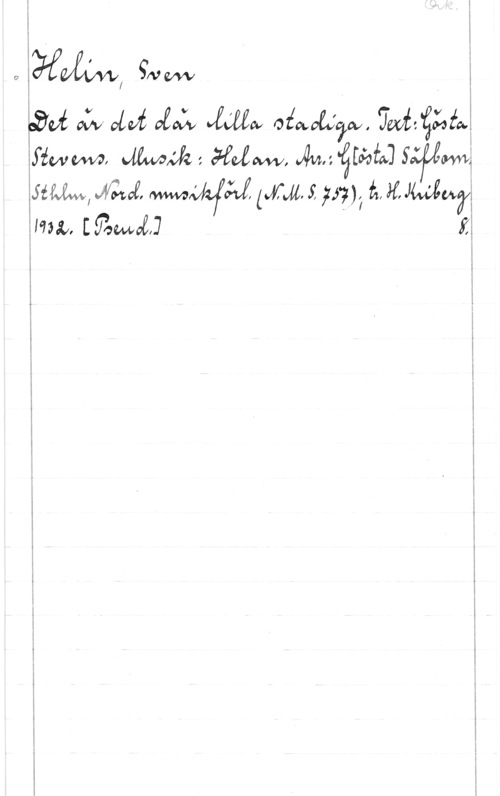 Ork.
Helin, Sven
Det är det där lilla stadiga. Text: Gösta
Stevens. Musik: Helan. Arr.: G[östa] Säfbom,
Sthlm, Nord. musikförl. (N.M.S. 757); tr. H. Kriberg
1932. [Pseud.] 8.